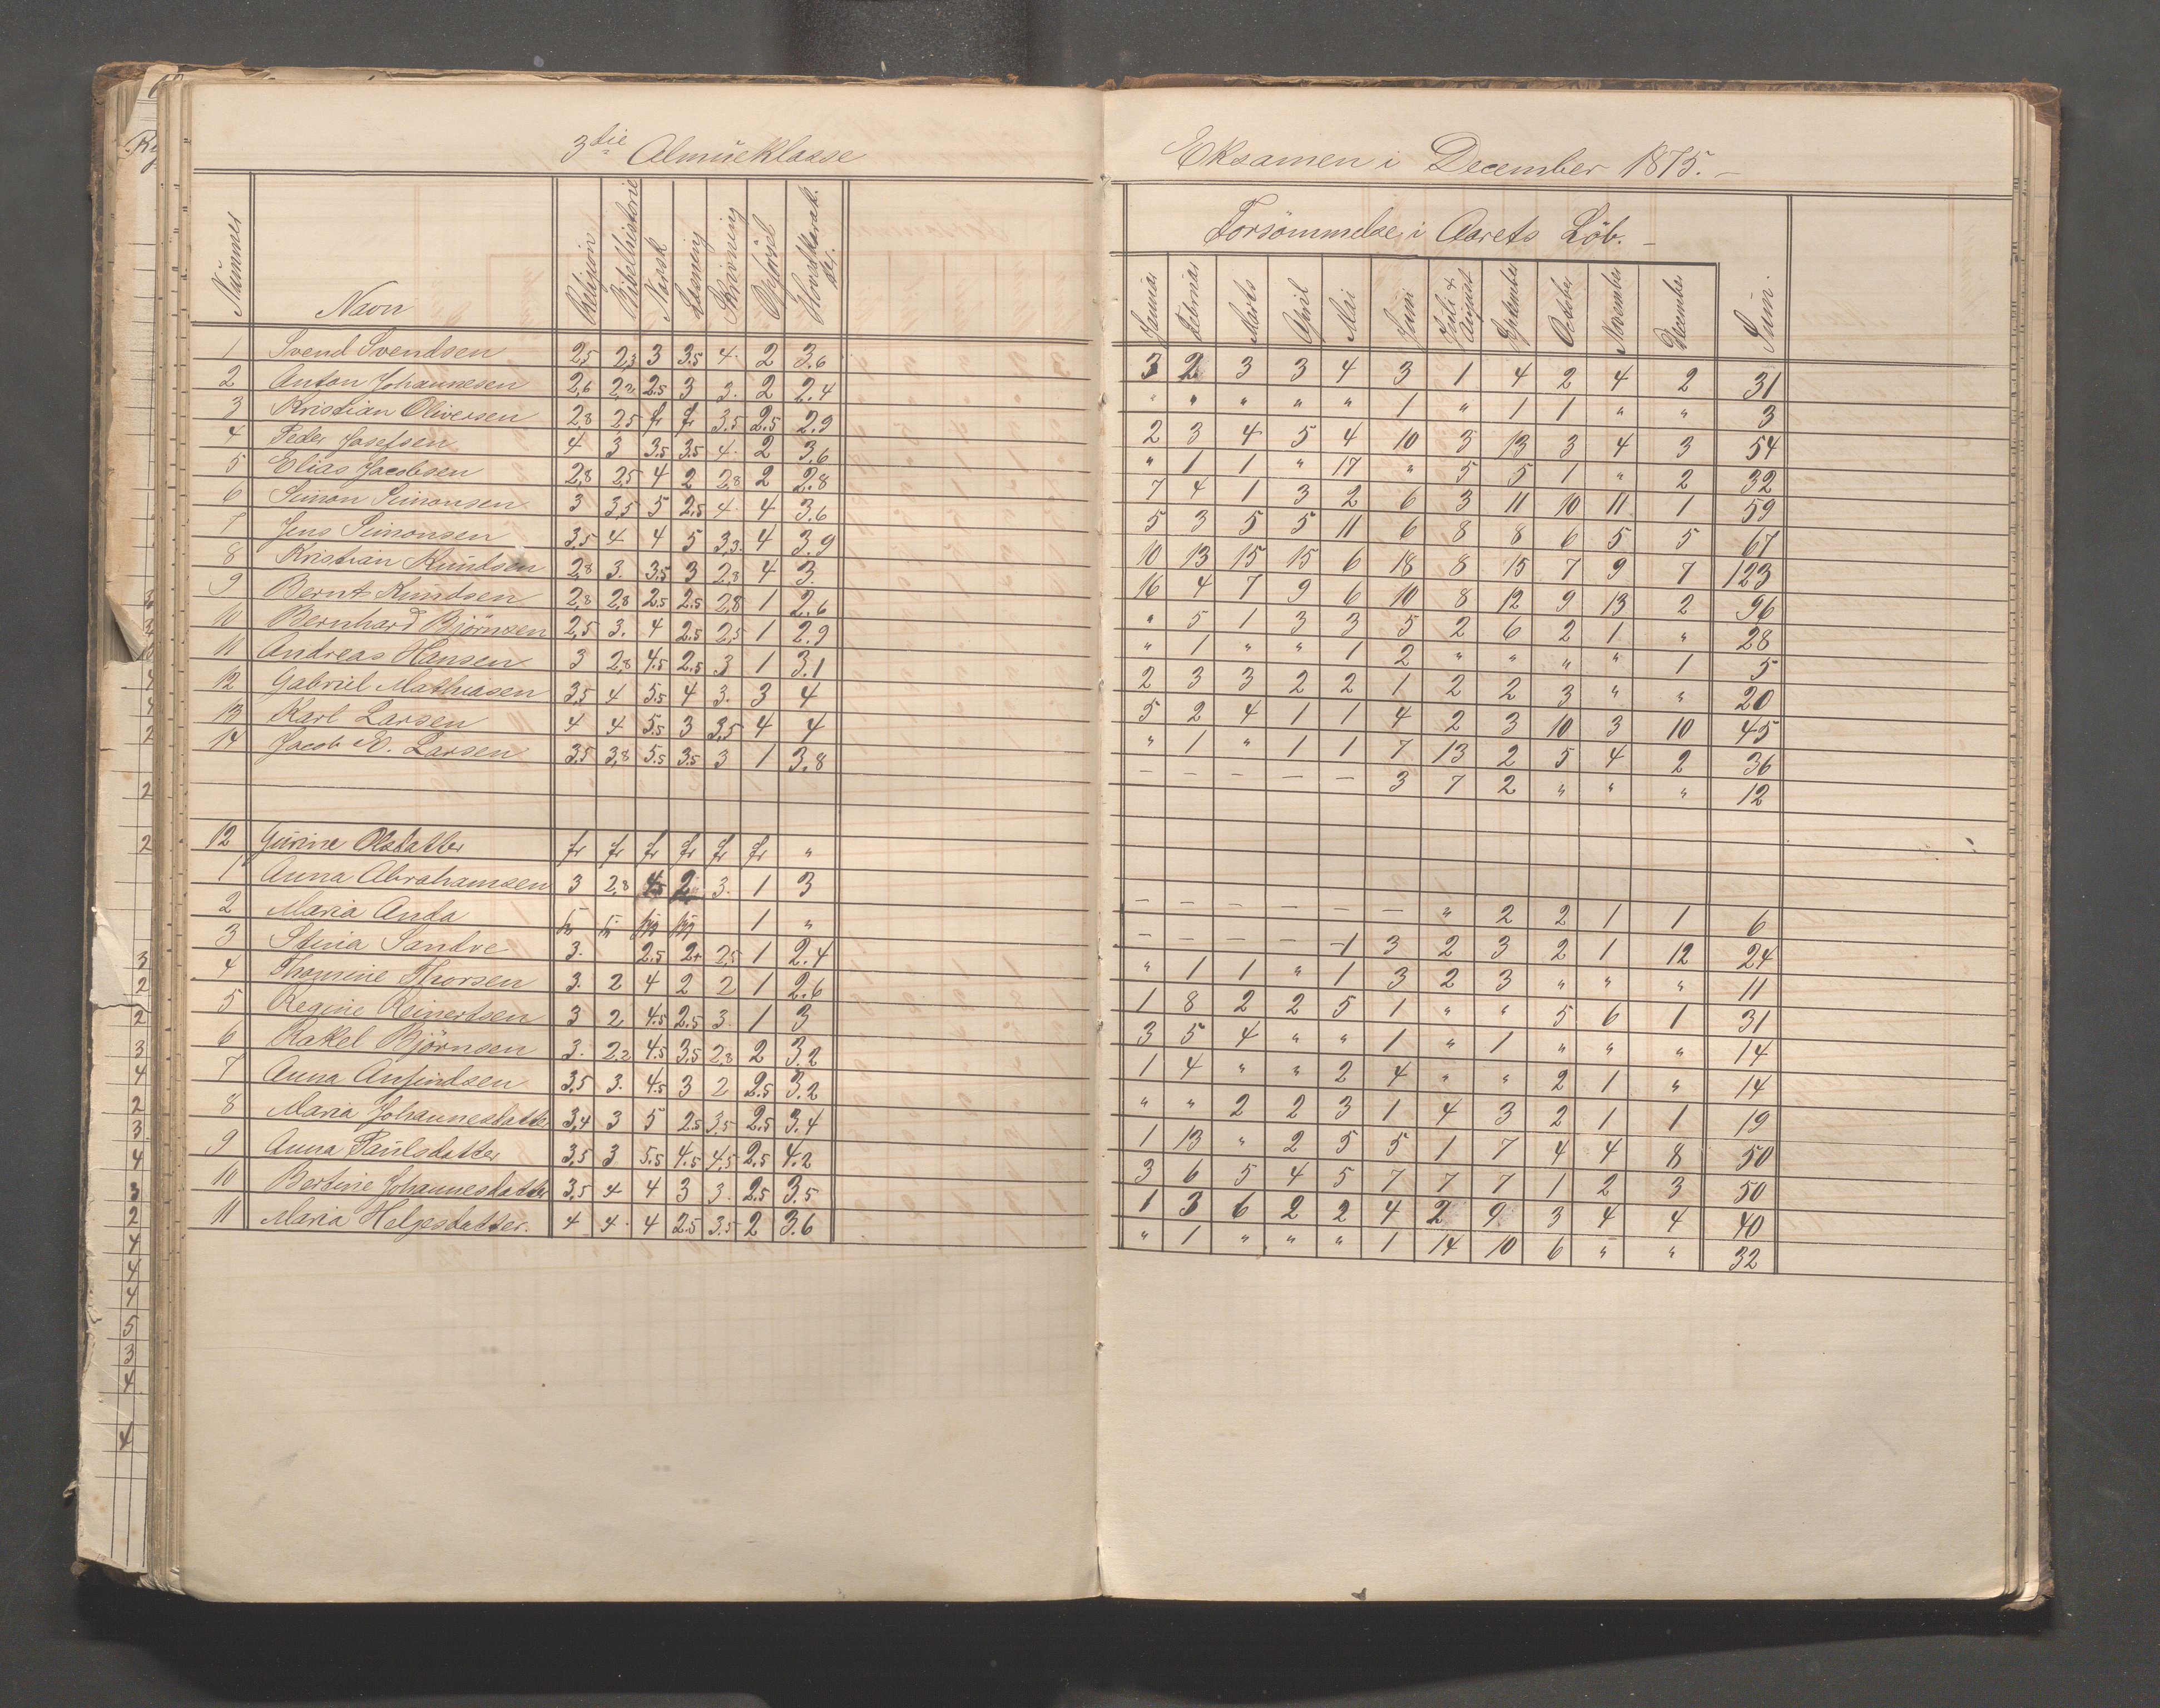 3die Almueklasse
Nummer Navn Religion Bibelhistorie Norsk Læsning Skrivning Opførsel Hovedkarakter.
1 Svend Svendsen 2,5 2,3 3 3.5 4. 2 3.6
2 Anton Johannesen 2,6 2,2 2.5 3 3. 2 2.4
3 Kristian Oliversen 2,8 2,5 fr fr 3.5 2.5 2.9
4 Peder Josefsen 4 3 3.5 3.5 4. 2 3.6
5 Elias Jacobsen 2,8 2,5 4 2 2,8 2 2.8
6 Simon Simonsen 3 3,5 5 2.5 4. 4 3.6
7 Jens Simonsen 3,5 4 4 5 3,3. 4 3.9
8 Kristian Knudsen 2,8 3. 3.5 3 2,8 4 3.
9 Bernt Knudsen 2,8 2,8 2.5 2.5 2,8 1 2.6
10 Bernhard Björnsen 2,5 3. 4 2.5 2,5 1 2.9
11 Andreas Hansen 3 2,8 4.5 2.5 3 1 3.1
12 Gabriel Mathiasen 3,5 4 5.5 4 3. 3 4
13 Karl Larsen 4 4 5.5 3 3,5 4 4
14 Jacob E. Larsen 3,5 3,8 5.5 3.5 3 1 3.8
12 Gurine Olsdatter fr fr fr fr fr fr "
1 Anna Abrahamsen 3 2,8 4.5 2 3. 1 3
2 Maria Anda 1 "
3 Stina Sandve 3. 2.5 2+ 2,5 1 2.4
4 Thomine Thorsen 3. 2 4 2 2 1 2.6
5 Regine Reinertsen 3 2 4.5 2.5 3. 1 3
6 Rakel Björnsen 3. 2,2 4.5 3.5 2,8 2 3.2
7 Anna Anfindsen 3,5 3. 4.5 3 2 2.5 3.2
8 Maria Johannesdatter 3,4 3 5 2.5 3,5 2.5 3.4
9 Anna Paulsdatter 3,5 3 5.5 4.5 4,5 2.5 4.2
10 Bertine Johannesdatter 3,5 4 4 3 3. 2.5 3.5
11 Maria Helgesdatter. 4 4. 4 2.5 3.5 2 3.6
Eksamen i December 1875. –
Forsömmelse i Aarets Löb. –
Januar Februar Marts April Mai Juni Juli & August September October November December Sum
3 2 3 3 4 3 1 4 2 4 2 31
" " " " " 1 " 1 1 " " 3
2 3 4 5 4 10 3 13 3 4 3 54
" 1 1 " 17 " 5 5 1 " 2 32
7 4 1 3 2 6 3 11 10 11 1 59
5 3 5 5 11 6 8 8 6 5 5 67
10 13 15 15 6 18 8 15 7 9 7 123
16 4 7 9 6 10 8 12 9 13 2 96
" 5 1 3 3 5 2 6 2 1 " 28
" 1 " " 1 2 " " " " 1 5
2 3 3 2 2 1 2 2 3 " " 20
5 2 4 1 1 4 2 3 10 3 10 45
" 1 " 1 1 7 13 2 5 4 2 36
– – – – – 3 7 2 " " " 12
– – – – – – " 2 2 1 1 6
– – – – 1 3 2 3 2 1 12 24
" 1 1 " 1 3 2 3 " " " 11
1 8 2 2 5 1 " " 5 6 1 31
3 5 4 " " 1 " 1 " " " 14
1 4 " " 2 4 " " 2 1 " 14
" " 2 2 3 1 4 3 2 1 1 19
1 13 " 2 5 5 1 7 4 4 8 50
3 6 5 4 5 7 7 7 1 2 3 50
1 3 6 2 2 4 2 9 3 4 4 40
" 1 " " " 1 14 10 6 " " 32